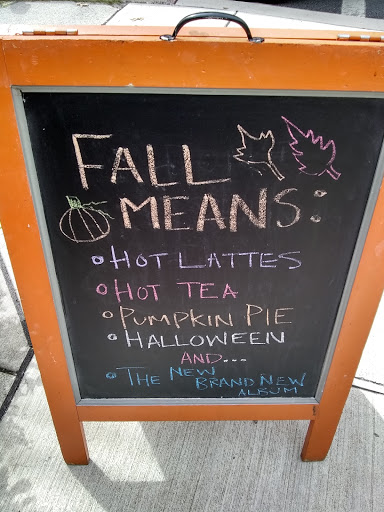 FALL
MEANS:
• HOT LATTES
• HOT TEA
• PUMPKIN PIE
• HALLOWEEN
AND...
• THE NEW
BRAND NEW
ALBUM